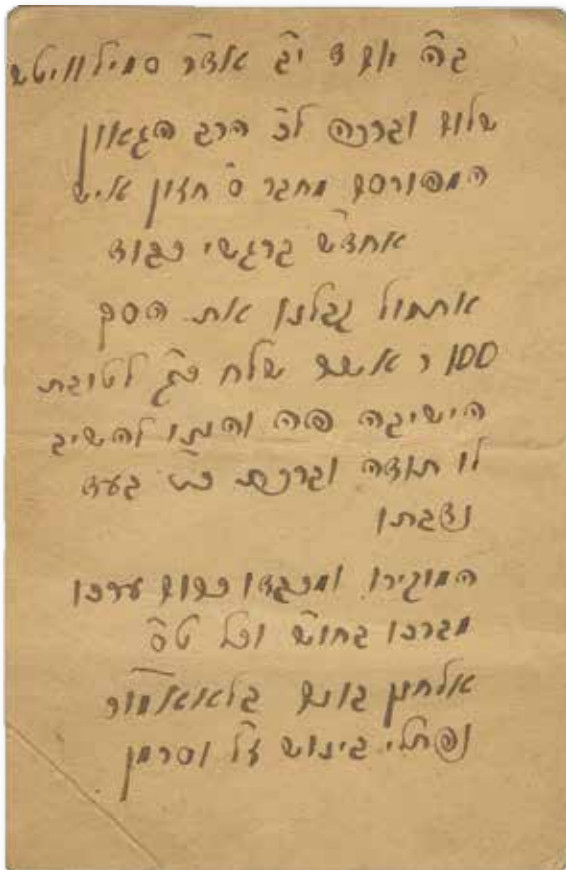 ב"ה יום ד' י"ג אדר סמילוויטש
שלום וברכה לכ' הרב הגאון
המפורסם מחבר ס' חזון איש
אחד"ש ברגשי כבוד
אתמול קבלנו את הסך
אשר שלח כ"ג לטובת
הישיבה פה והננו להשיב
לו תודה וברכת כט בעד
נדבתו
המוקירו ומכבדו כרום ערכו
מברכו בחוש וכל ט"ס
אלחנן בונם בלאאמור
נפתלי בינוש ז"ל וסרמן